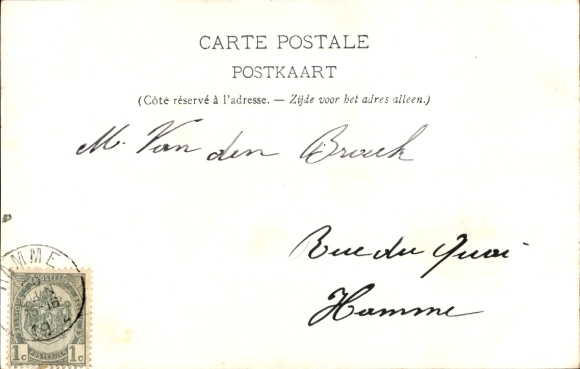 CARTE POSTALE
POSTKAART
(Côté réservé à l'adresse. — Zijde voor het adres alleen.)
M. Van den Broeck
Rue du Quai
Hamme
HAMME
1c 1c